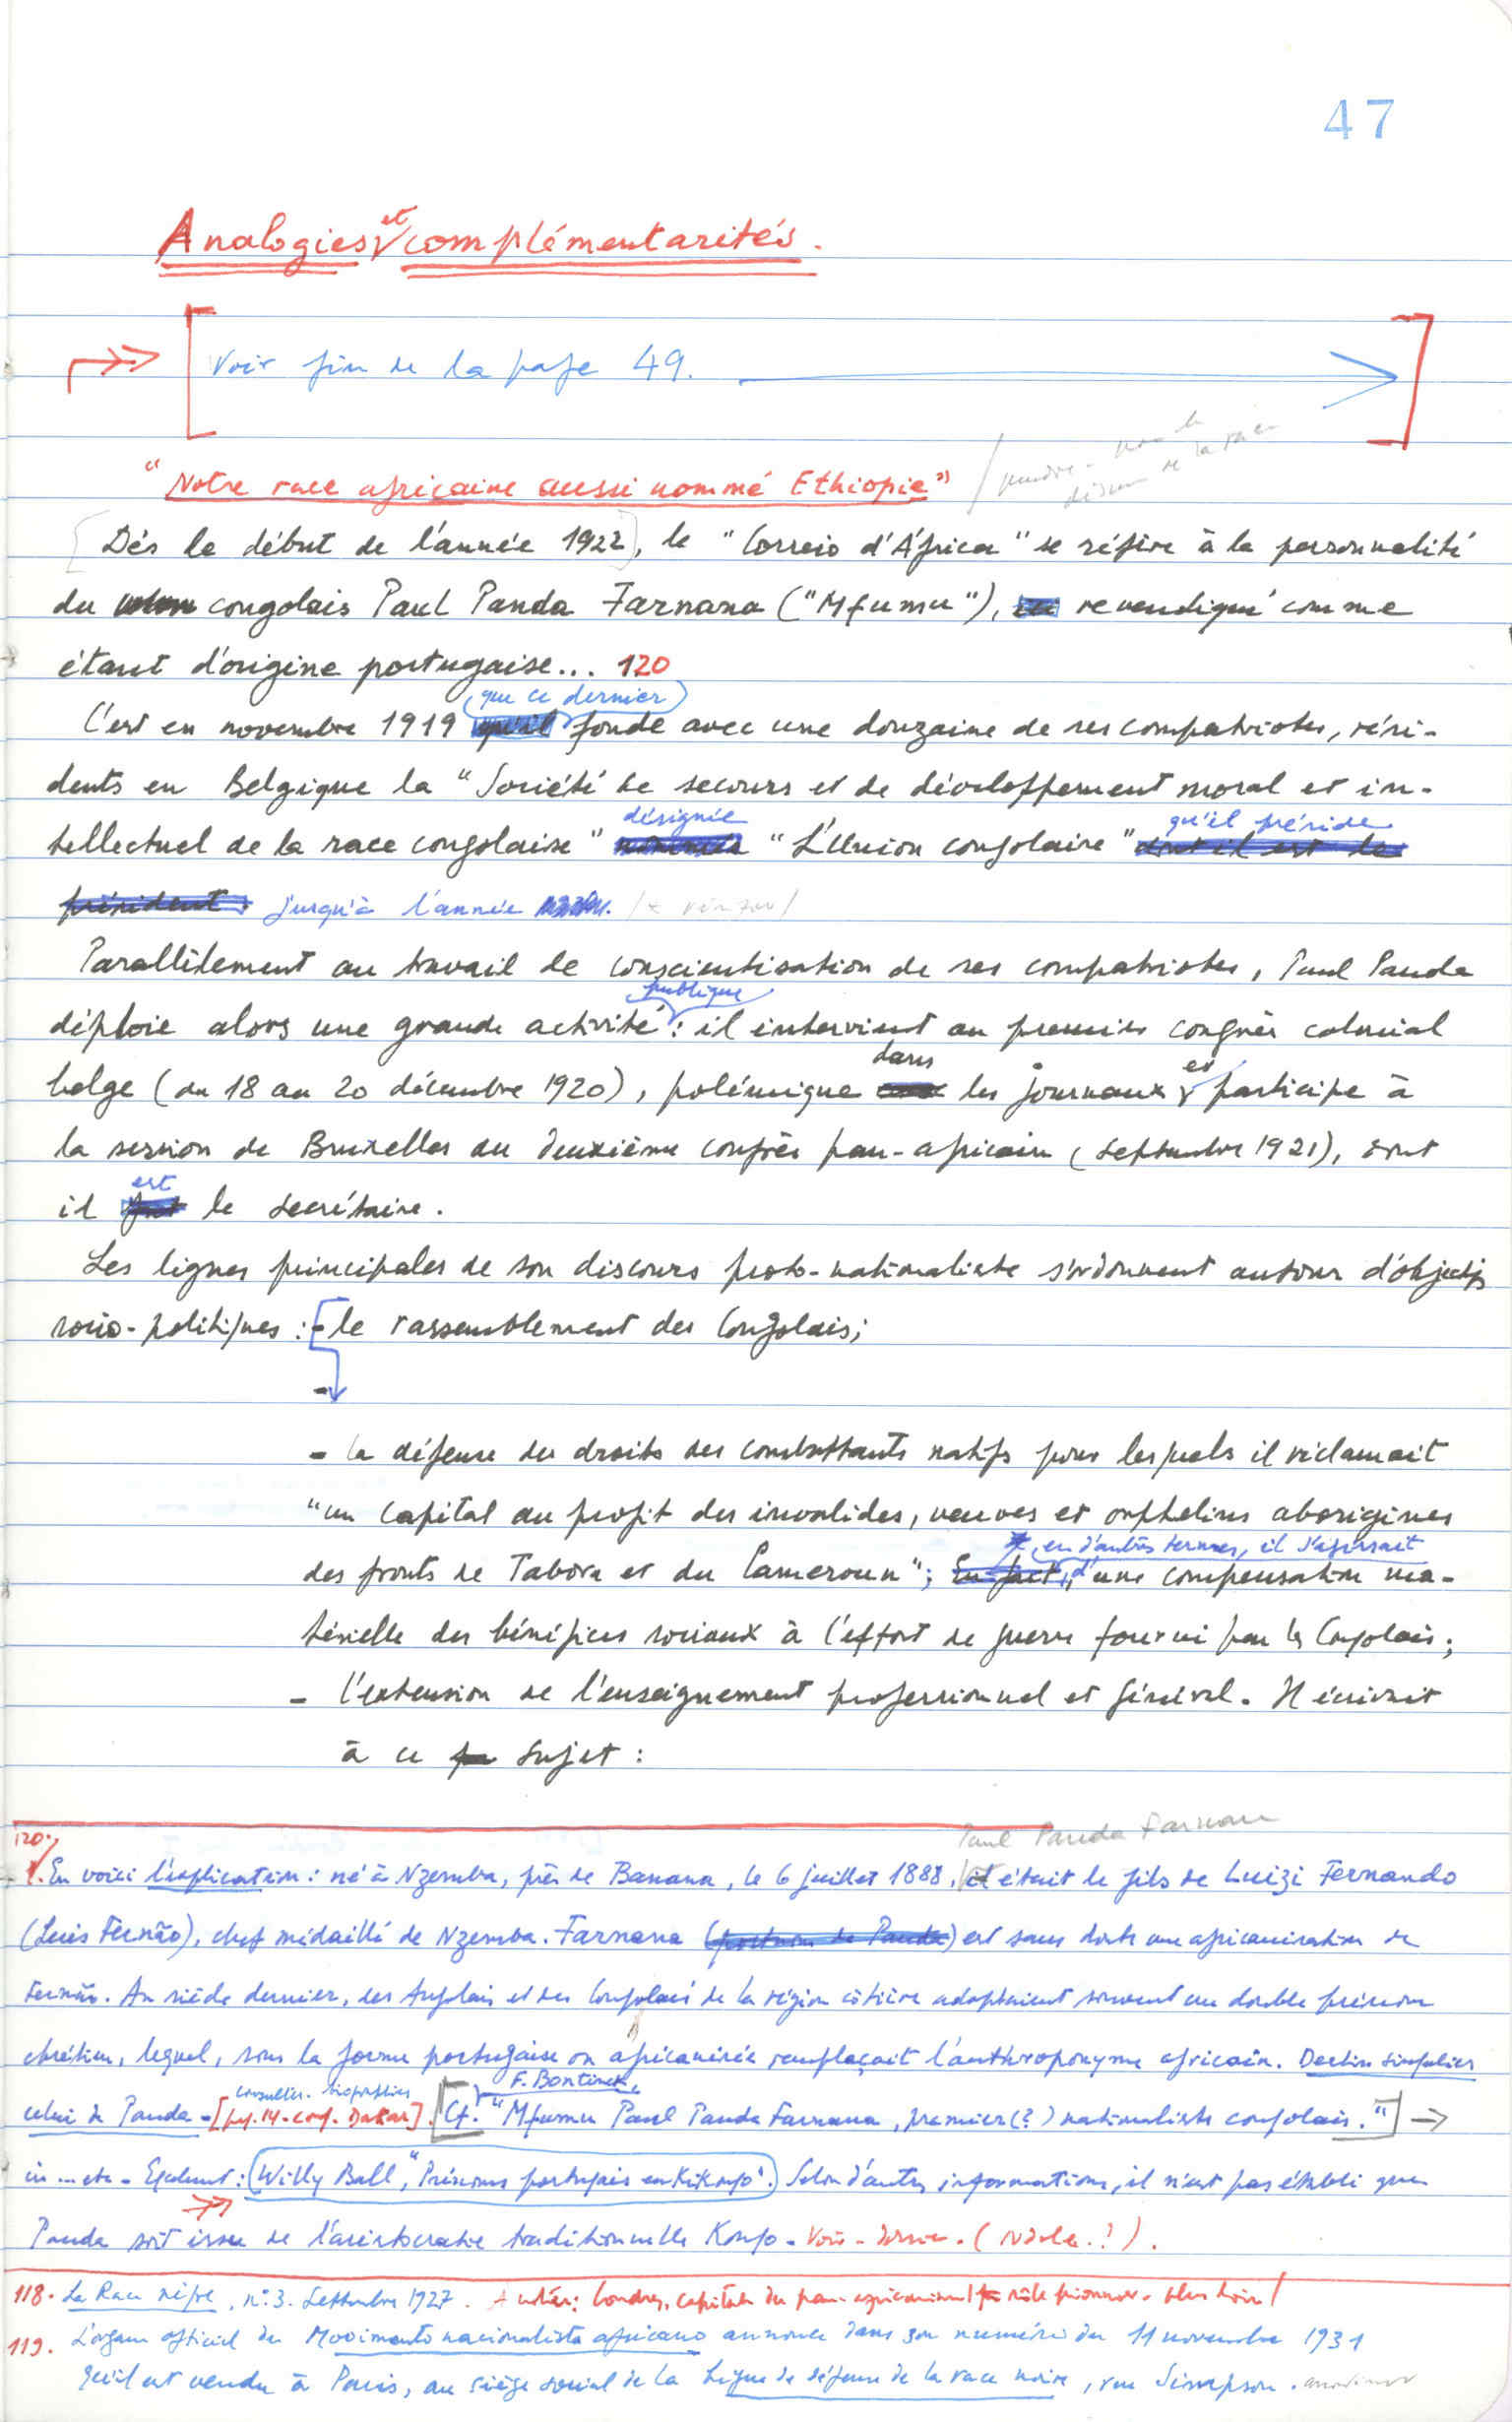 47
Analogies et complémentarités.
Voir fin de la page 49.
"Notre race africaine aussi nommé Ethiopie"
Dès le début de l'année 1922, le "Correio d'África" se réfère à la personnalité
du congolais Paul Panda Farnana ("Mfumu"), revendiqué comme
étant d'origine portugaise... 120
C'est en novembre 1919 que ce dernier fonde avec une douzaine de ses compatriotes, rési-
dents en Belgique la "Société de secours et de développement moral et in-
tellectuel de la race congolaise" désignée "L'Union congolaise" qu'il préside
jusqu'à l'année
Parallèlement au travail de conscientisation de ses compatriotes, Paul Panda
déploie alors une grande activité publique : il intervient au premier congrès colonial
belge (du 18 au 20 décembre 1920), polémique dans les journaux et participe à
la session de Bruxelles du deuxième congrès pan-africain (septembre 1921), dont
il est le secrétaire.
Les lignes principales de son discours proto-nationaliste s'ordonnent autour d'objectifs
socio-politiques : - le rassemblement des Congolais;
-
- la défense des droits des combattants natifs pour lesquels il réclamait
"un capital au profit des invalides, veuves et orphelins aborigines
des fronts de Tabora et du Cameroun"; en d'autres termes, il s'agissait d'une compensation ma-
térielle des bénéfices sociaux à l'effort de guerre fourni par les Congolais;
- l'extension de l'enseignement professionnel et général. Il écrivait
à ce sujet :
Paul Panda Farnana
120. En voici l'explication : né à Nzemba, près de Banana, le 6 juillet 1888, il était le fils de Luizi Fernando
(Luís Fernão), chef médaillé de Nzemba. Farnana est sans doute une africanisation de
Fernão. Au siècle dernier, des Angolais et des Congolais de la région côtière adoptaient souvent un double prénom
chrétien, lequel, sous la forme portugaise ou africanisée remplaçait l'anthroponyme africain. Destin singulier
celui de Panda - [consulter biographies - conf. Dakar]. [Cf. F. Bontinck, "Mfumu Paul Panda Farnana, premier (?) nationaliste congolais."]
in ... etc - Egalement : Willy Ball, "Prénoms portugais en Kikongo". Selon d'autres informations, il n'est pas établi que
Panda soit issu de l'aristocratie traditionnelle Kongo - Voir - (Ndole ?).
118. La Race nègre, n.º 3. Septembre 1927. Londres, capitale du pan-africanisme / rôle pionnier - plus loin /
119. L'organe officiel du Movimento nacionalista africano annonce dans son numéro du 11 novembre 1931
qu'il est vendu à Paris, au siège social de la Ligue de défense de la race noire, rue Simpson.